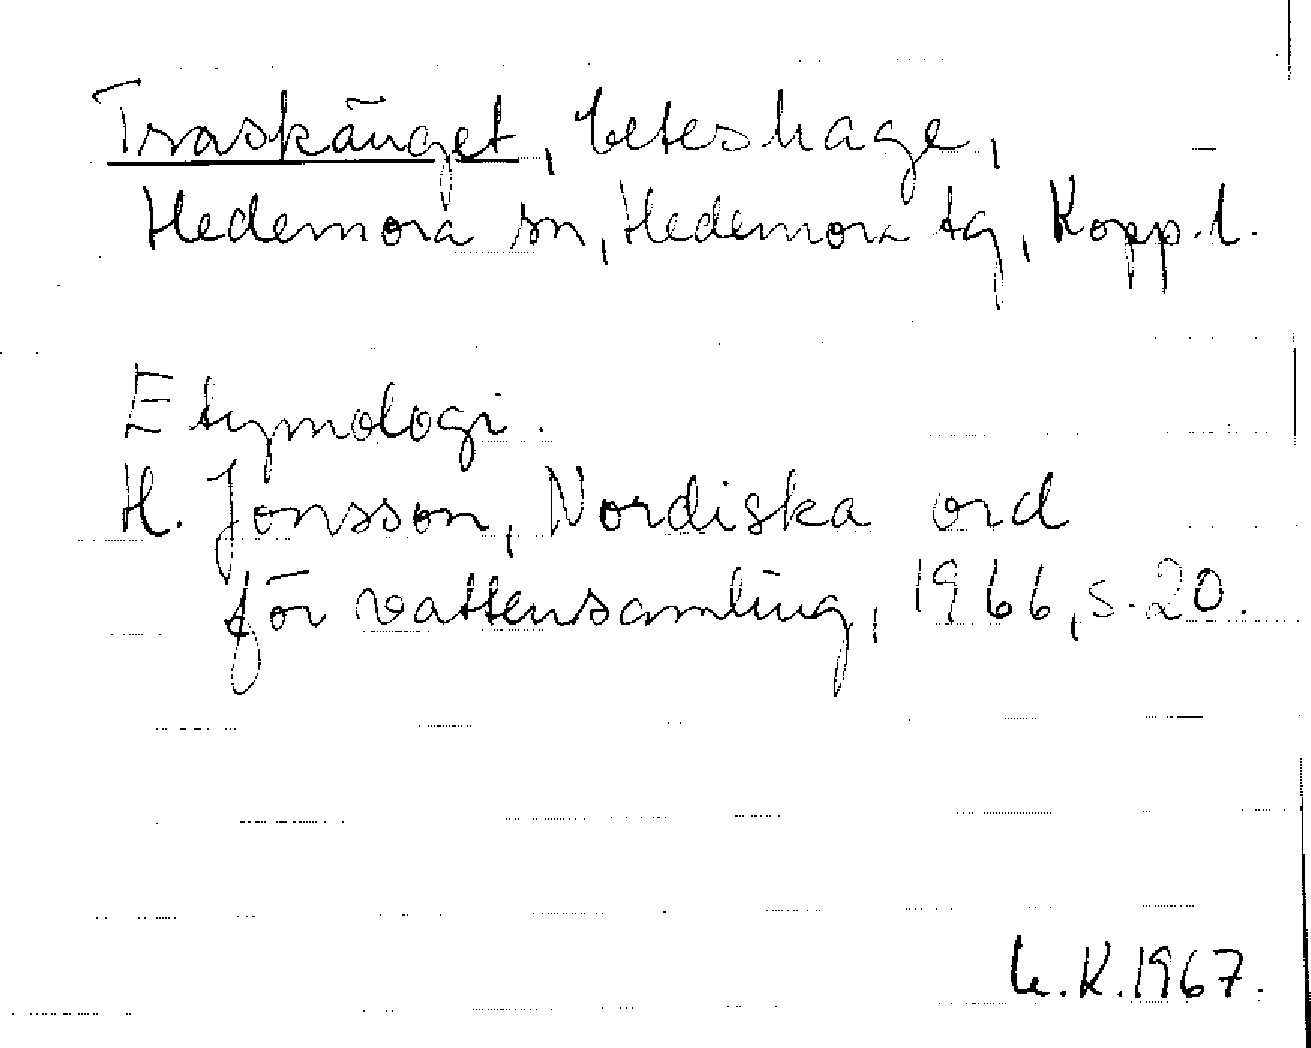 Traskänget, beteshage,
Hedemora sn, Hedemora tg, Kopp. l.
Etymologi.
H. Jonsson, Nordiska ord
för vattensamling, 1966, s. 20.
K. 1967.